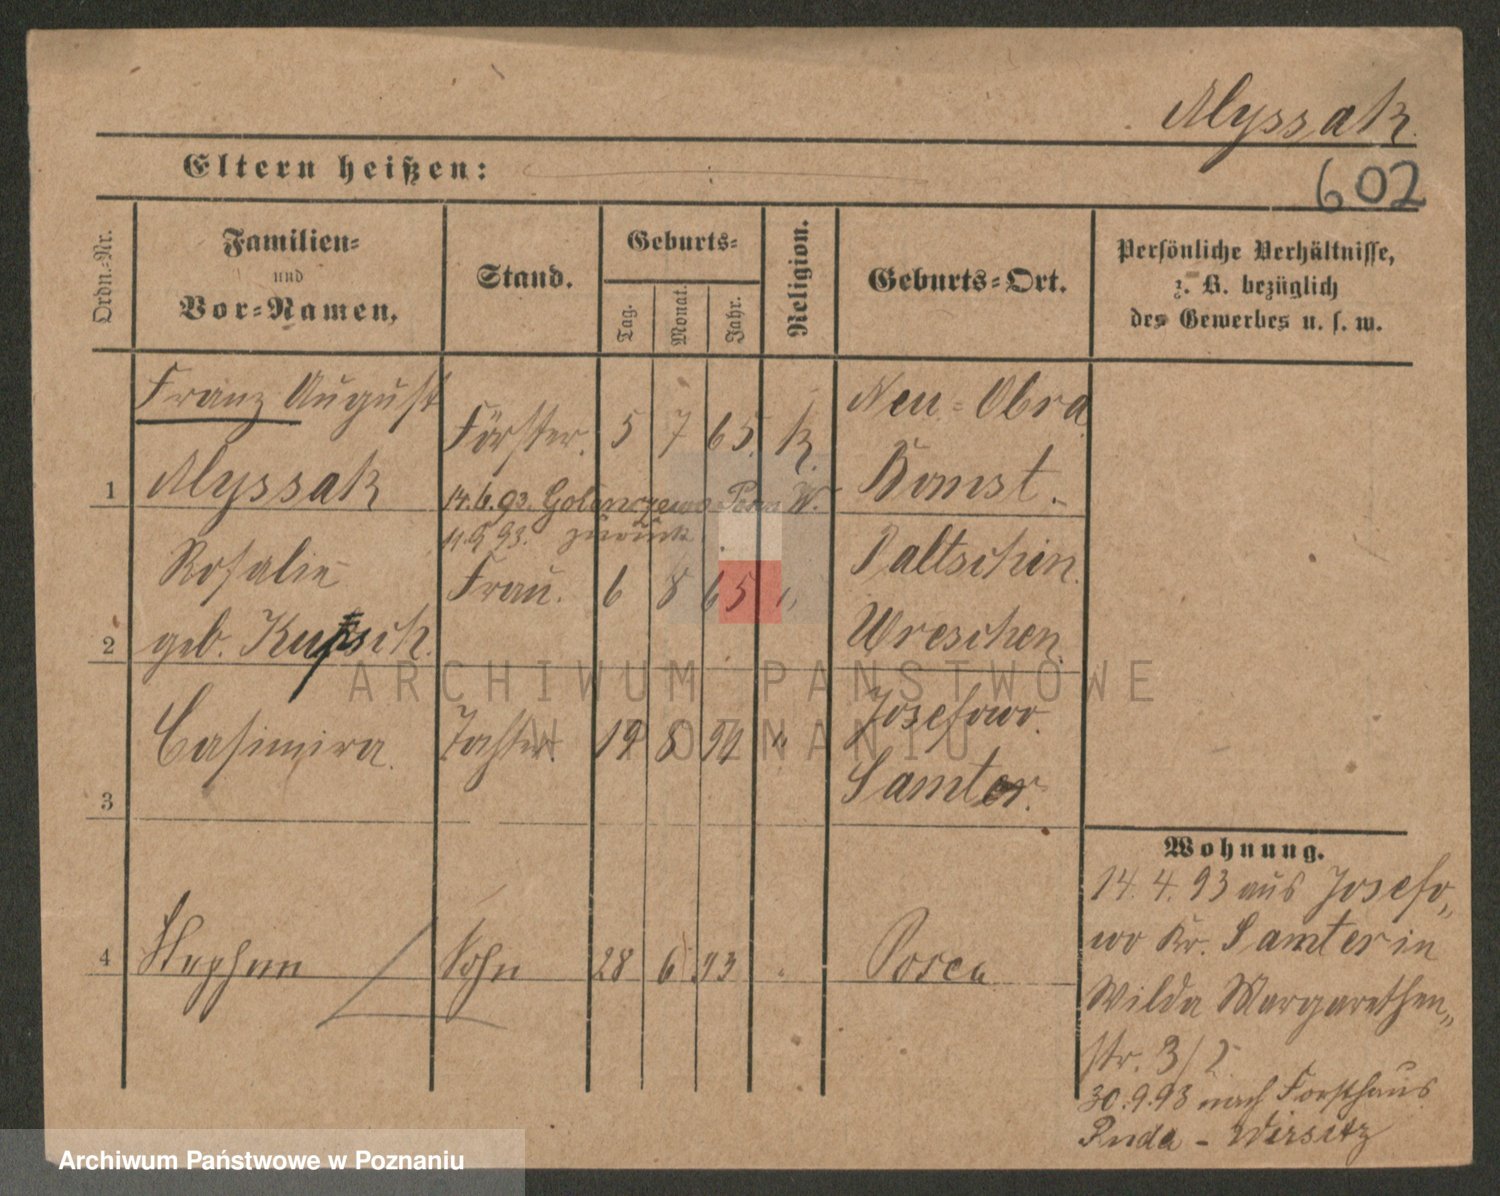 Myssak.
602
Eltern heißen:
Ordn.-Nr.
Familien-
und
Vor-Namen,
Stand.
Geburts-
Tag.
Monat.
Jahr.
Religion.
Geburts-Ort.
Persönliche Verhältnisse,
z. B. bezüglich
des Gewerbes u. s. w.
Franz August
Myssak
1
Förster.
5 7 65. K.
Neu-Obra
Bomst.
14.6.93. W.
11.9.93. zurück
Rosalie
geb.
2
Frau.
6 8 65 "
Paltschin.
Wreschen
Casimira.
3
Tochter.
19 8 91 "
Josefowo.
Samter.
4
Stephan
Sohn
28 6 93 "
Posen
Wohnung.
14.4.93 aus Josefo„
wo Kr. Samter in
Wilda Margarethen„
str. 3/
30.9.93 nach Forsthaus
Ruda - Wirsitz
ARCHIWUM PAŃSTWOWE
W POZNANIU
Archiwum Państwowe w Poznaniu